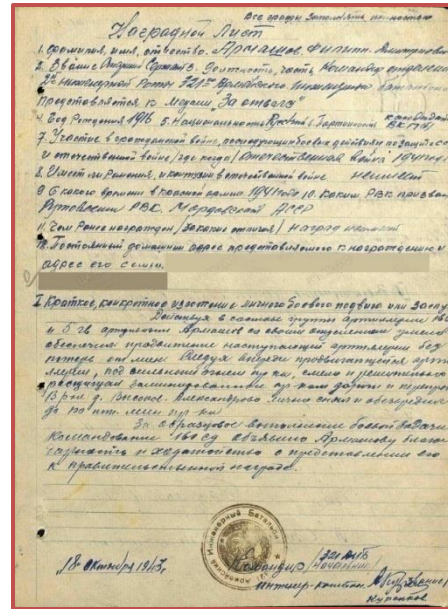 Все графы заполнять полностью
Наградной Лист
1. Фамилия, имя, отчество. Армашов Филипп Дмитриевич
2. Звание Старший Сержант 3. Должность, часть Командир отделения
2й инженерной Роты 321го Армейского Инженерного батальона
Представляется к медали "За отвагу"
4. Год Рождения 1916 5. Национальность Русский 6. Партийность кандидат ВКП(б)
7. Участие в гражданской войне, последующих боевых действиях по защите СССР
и отечественной войне /где когда/ Отечественная Война 1941 год
8. Имеет ли Ранения, и контузии в отечественной войне неимеет
9. С какого времени в Красной армии 1941 года 10. Каким РВК призван
РВК. Мордовской АССР
11. Чем Ранее награжден /за какие отличия/ наград неимеет
12. Постоянный домашний адрес представляемого к награждению и
адрес его семьи.
I Краткое, конкретное изложение личного боевого подвига или заслуг
Действуя в составе групп артиллерии
и 5 гв артполков Армашов со своим отделением умело
обеспечил продвижение наступающей артиллерии без
потерь от мин. Следуя впереди продвигающейся артил
лерии, под сильным огнем пр-ка, смело и решительно
расчищал заминированные пр-ком дороги и
В р-не д. Высокое, Александрово лично снял и обезвредил
до 80 пт. мин пр-ка
За образцовое выполнение боевой задачи
Командование 160 сд объявило Армашову благо
дарность и ходатайство о представлении его
к правительственной награде.
18 октября 1943г.
Командир 321 АИБ
инженер-капитан